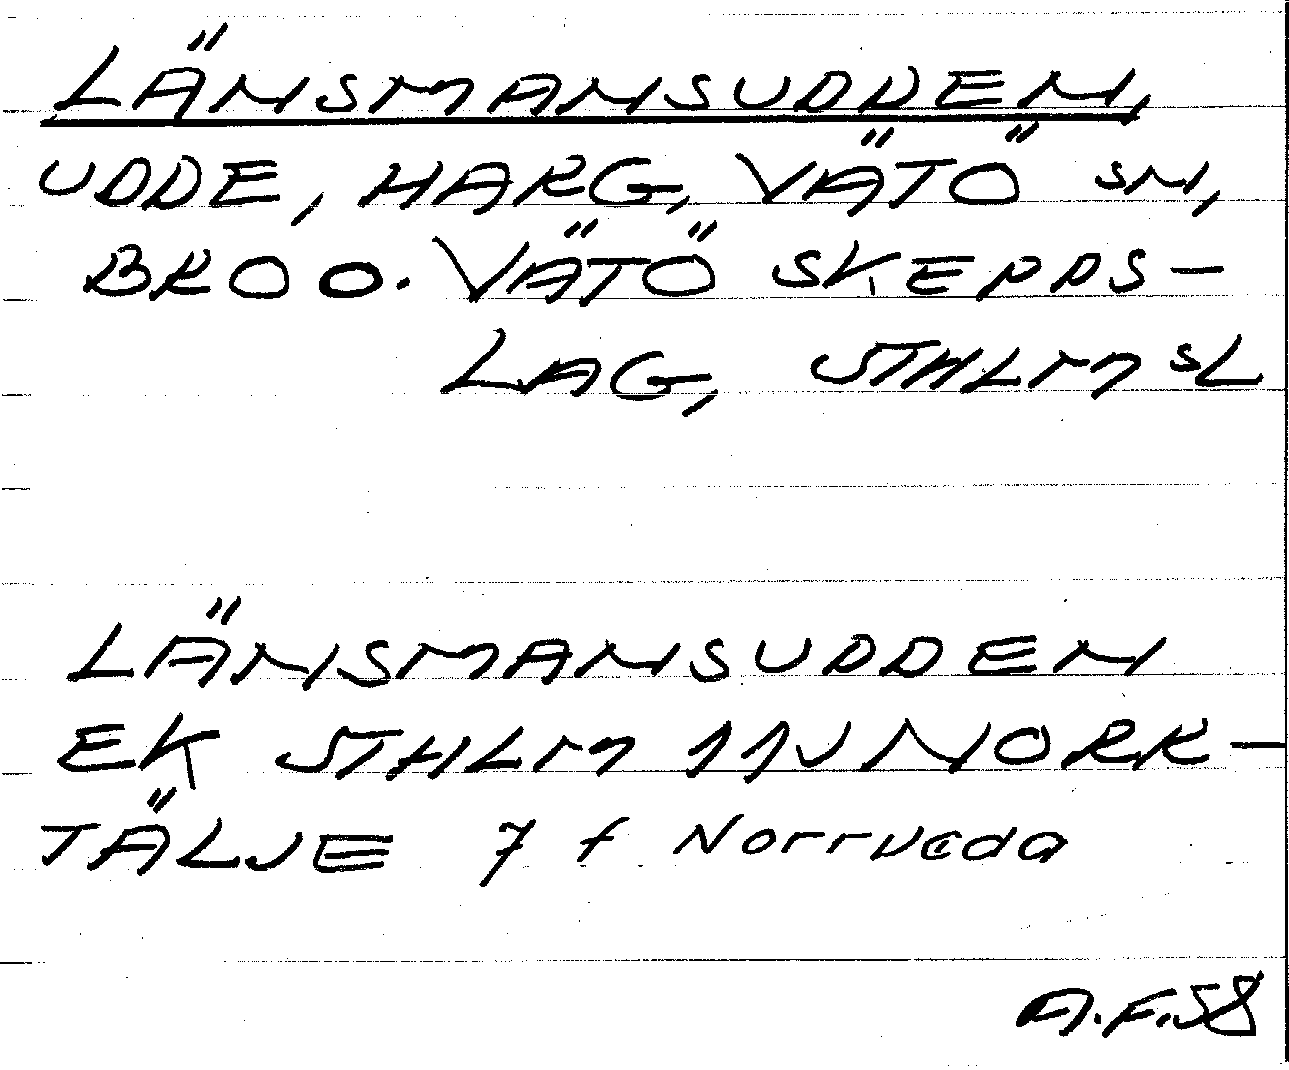 LÄNSMANSUDDEN,
UDDE, HARG, VÄTÖ SN,
BRO O. VÄTÖ SKEPPS-
LAG, STHLM SL
LÄNSMANSUDDEN
EK STHLM 11J NORR-
TÄLJE 7 f Norrveda
A.F.58